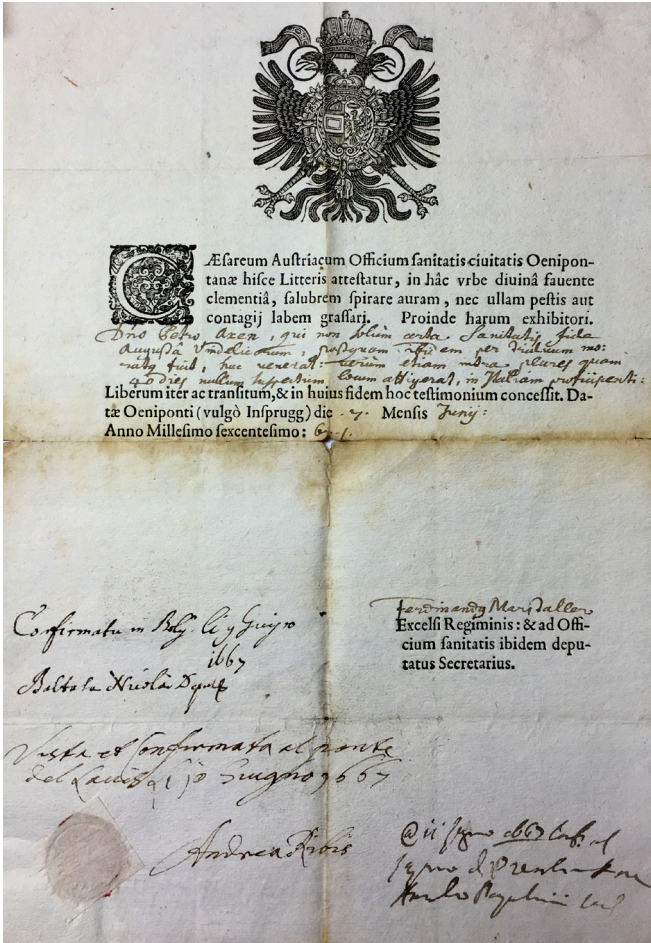 CÆsareum Austriacum Officium sanitatis ciuitatis Oenipon-
tanæ hisce Litteris attestatur, in hâc vrbe diuinâ fauente
clementiâ, salubrem spirare auram, nec ullam pestis aut
contagij labem grassari. Proinde harum exhibitori.
Dno Petro Axen, qui non solùm certa Sanitatis fida
Augusta Vindelicorum, postquam per
fuit, huc venerat: verùm etiam intra plures quam
40 dies nullum suspectum locum attigerat, in Italiam proficiscenti:
Liberum iter ac transitum, & in huius fidem hoc testimonium concessit. Da-
tæ Oeniponti (vulgò Insprugg) die 7. Mensis Junij:
Anno Millesimo sexcentesimo: 67.
Ferdinandus
Excelsi Regiminis: & ad Offi-
cium sanitatis ibidem depu-
tatus Secretarius.
Confirmata in li 9 Giugno
1667
Nicolò
Vista et Confirmata al ponte
del Lauis Giugno 1667
Andrea